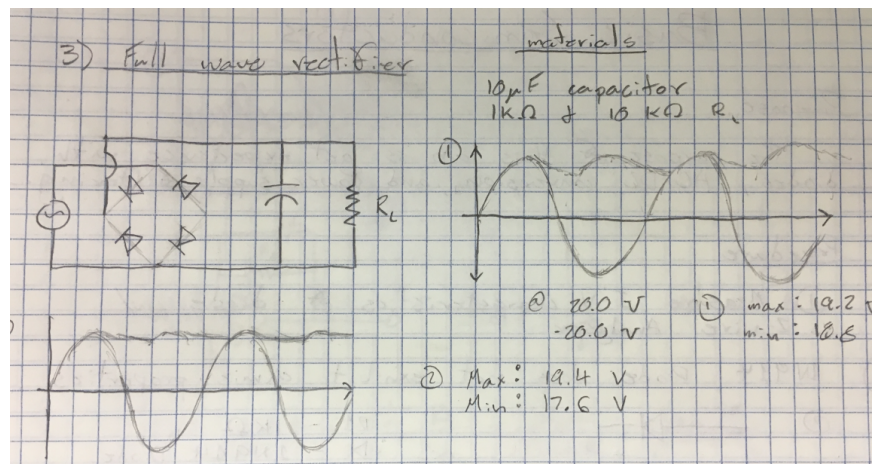 3) Full wave rectifier
materials
10μF capacitor
1KΩ & 10 KΩ R_L
①
R_L
@ 20.0 V
-20.0 V
① max: 19.2 V
min:
② Max: 19.4 V
Min: 17.6 V